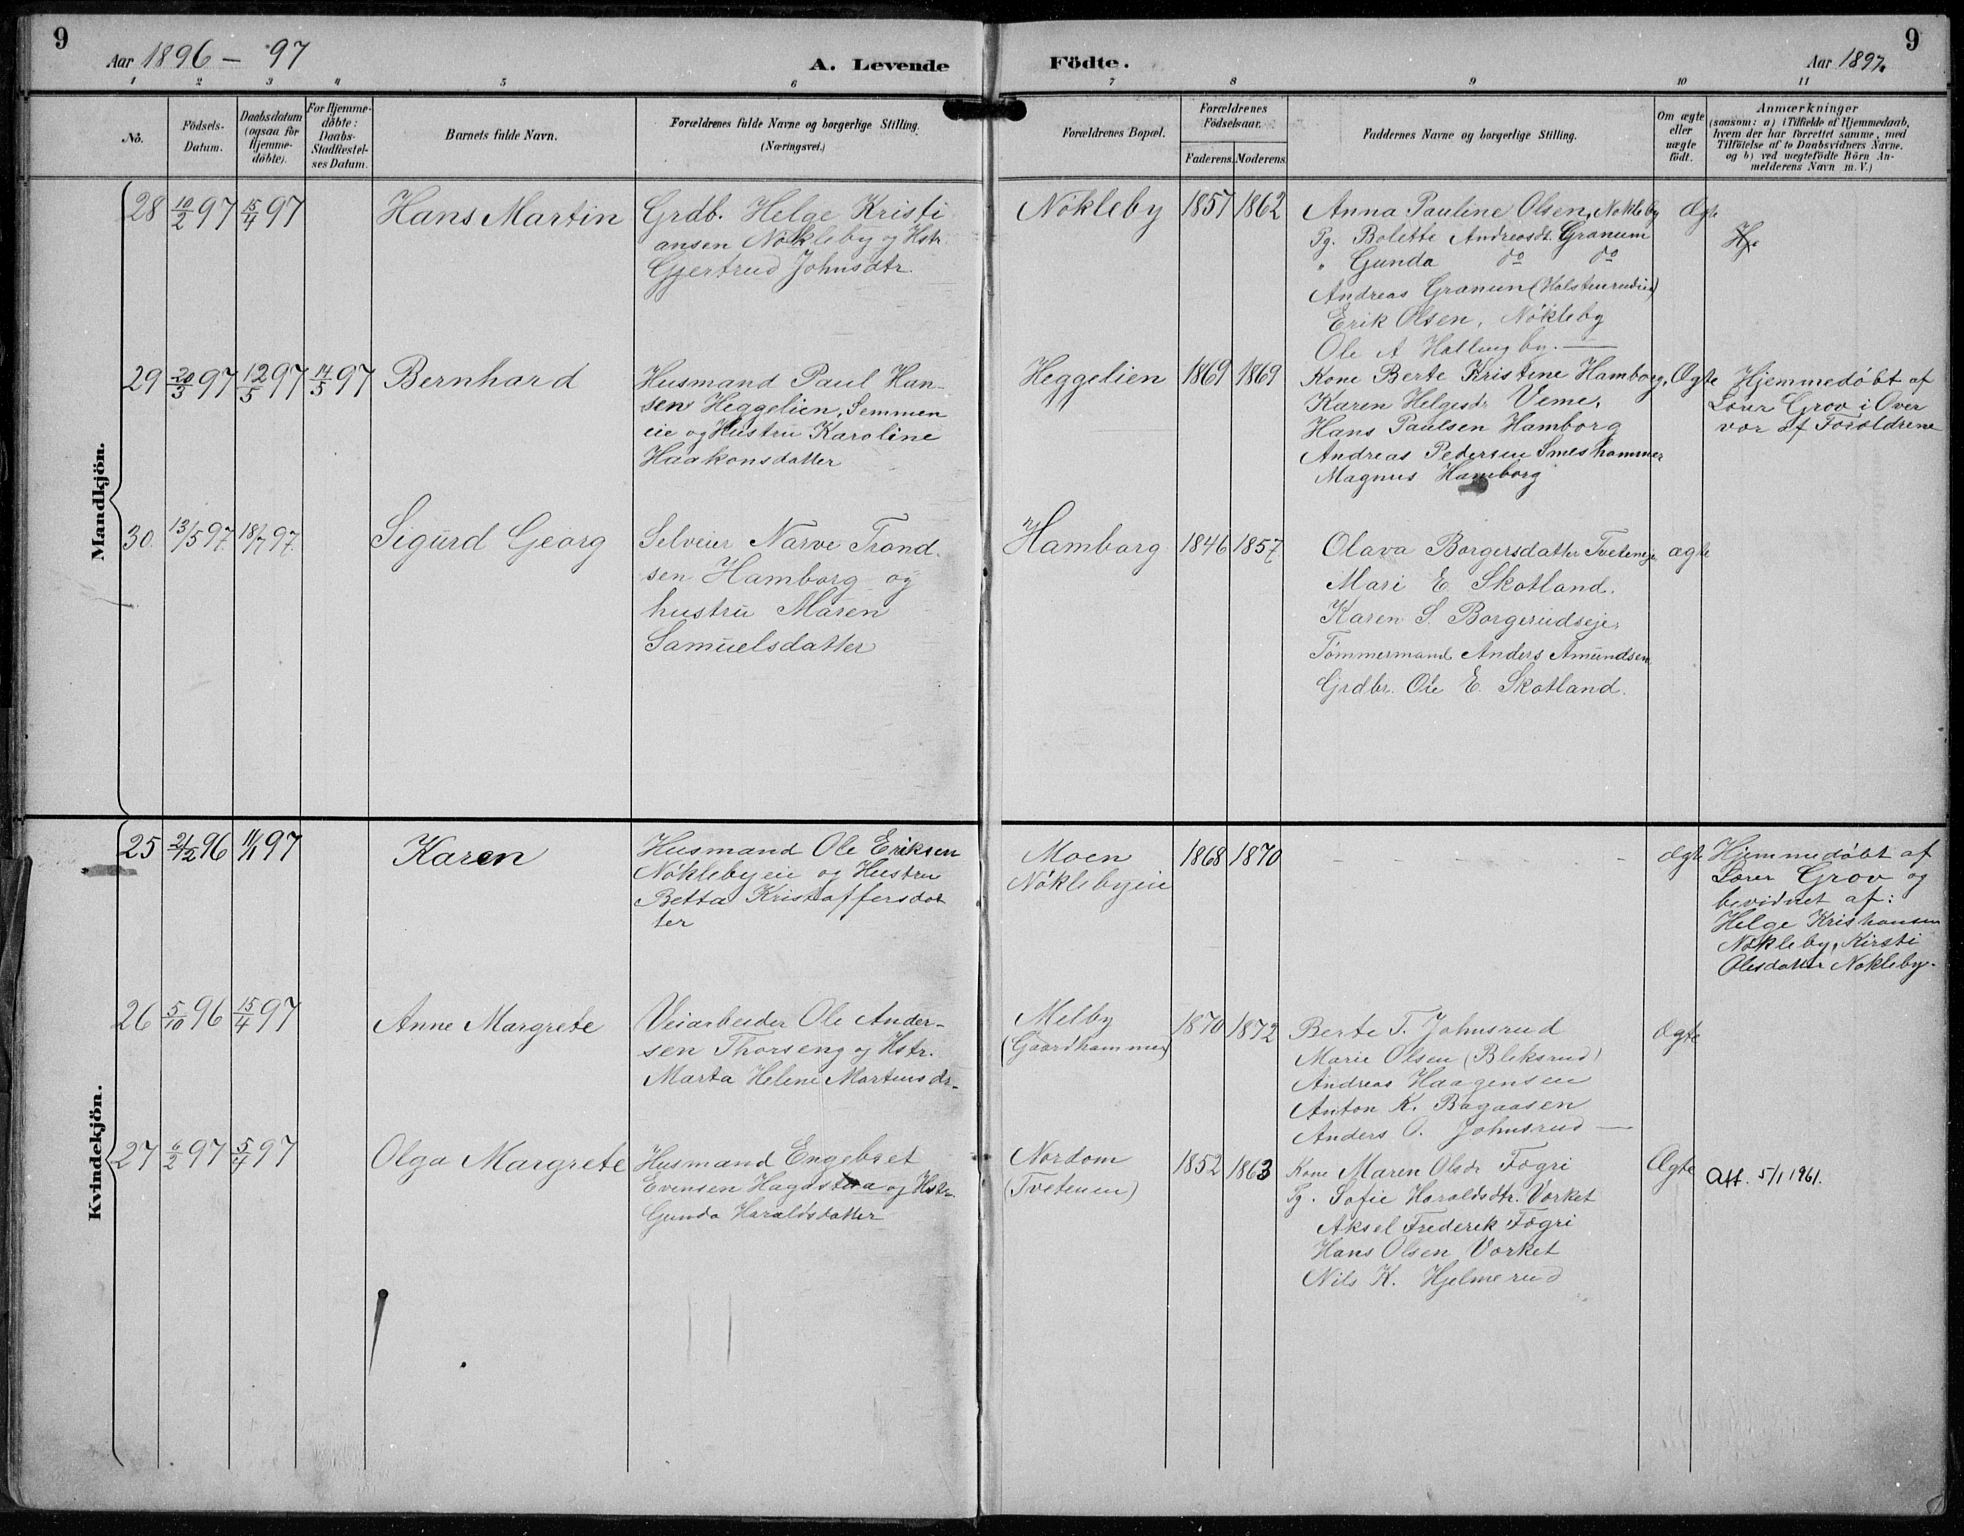 9
Aar 1896 - 97
A. Levende
Födte.
Aar 1897.
9
1 2 3 4 5 6 7 8 9 10 11
No.
Födsels-
Datum.
Daabsdatum
(ogsaa for
Hjemme-
döbte).
For Hjemme-
döbte:
Daabs-
Stadfæstel-
ses Datum.
Barnets fulde Navn.
Forældrenes fulde Navne og borgerlige Stilling.
(Næringsvei.)
Forældrenes Bopæl.
Forældrenes
Födselsaar.
Faderens. Moderens.
Faddernes Navne og borgerlige Stilling.
Om ægte
eller
uægte
födt.
Anmærkninger
(saasom: a) i Tilfælde af Hjemmedaab,
hvem der har forrettet samme, med
Tilföielse af to Daabsvidners Navne.
og b) ved uægtefödte Börn An-
melderens Navn m. V.)
Mandkjön.
28 10/2 97 15/4 97
Hans Martin
Grdb. Helge Kristi
ansen Nökleby og Hstr.
Gjertrud Johnsdtr.
Nökleby
1857 1862
Anna Pauline Olsen, Nökleby
Pg. Bolette Andreasdt. Granum
" Gunda do do
Andreas Granum (Holstenrudeie)
Erik Olsen, Nökleby
Ole A Hallingby. —
Ægte
29 20/3 97 12/5 97 14/5 97
Bernhard
Husmand Paul Han-
sen Heggelien, Semmen
eie og Hustru Karoline
Haakonsdatter
Heggelien
1869 1869
Kone Berte Kristine Hamborg,
Karen Helgesdr Veme,
Hans Paulsen Hamborg
Andreas Pedersen Smeshammer
Magnus Hamborg
Ægte
Hjemmedöbt af
Lærer Grov i Over
vær af Foræ​ldrene
30 13/5 97. 18/7 97.
Sigurd Georg
Selveier Narve Trond
sen Hamborg og
hustru Maren
Samuelsdatter
Hamborg
1846 1857
Olava Borgersdatter Tveteneje
Mari E Skotland.
Karen S. Borgerudseje,
Tömmermand Anders Amundsen
Grdbr. Ole E. Skotland.
ægte
Kvindekjön.
25 21/12 96 11/1 97
Karen
Husmand Ole Eriksen
Nöklebyeie og Hustru
Betta Kristoffersdat
ter
Moen
Nöklebyeie
1868 1870
- - - - - -
Ægte
Hjemmedöbt af
Lærer Grov og
bevidnet af:
Helge Kristiansen
Nökleby, Kirsti
Olesdatter Nökleby.
26 5/10 96 15/4 97
Anne Margrete
Veiarbeider Ole Ander-
sen Thorseng og Hstr.
Marta Helene Martinsdr.
Melby
(Gaardhammer)
1870 1872
Berte T. Johnsrud
Marie Olsen (Bleksrud)
Andreas Haagensen
Anton K. Bagaasen
Anders O. Johnsrud —
Ægte
27 6/2 97 5/7 97
Olga Margrete
Husmand Engebret
Evensen Hagastua og Hstr.
Gunda Haraldsdatter
Nordom
(Tvetenen)
1852 1863
Kone Maren Olsdr Fogri
Pg. Sofie Haroldsdtr. Vørket
Aksel Frederik Fogri
Hans Olsen Vørket
Nils K. Hjelmerud
Ægte
Att. 5/1 1961.